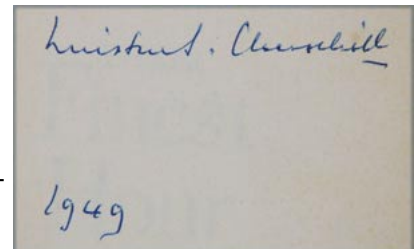 Winston S. Churchill
1949